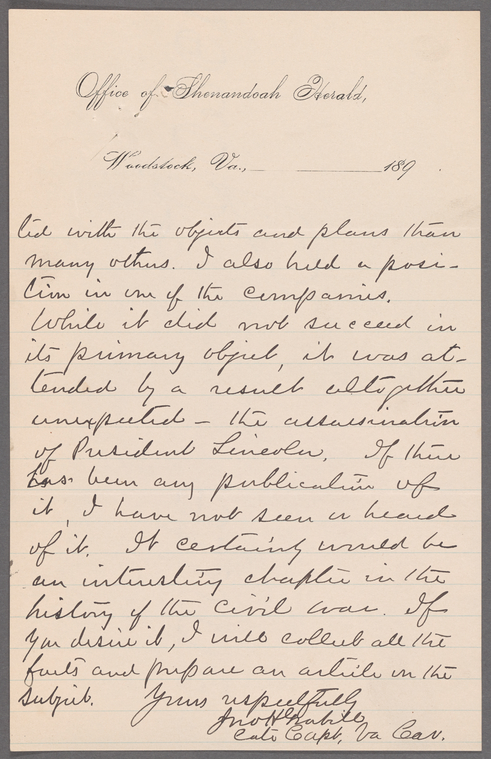 Office of Shenandoah Herald,
Woodstock, Va., 189
ted with the objects and plans than
many others. I also held a posi-
tion in one of the companies.
While it did not succeed in
its primary object, it was at-
tended by a result altogether
unexpected - the assassination
of President Lincoln. If there
has been any publication of
it, I have not seen or heard
of it. It certainly would be
an interesting chapter in the
history of the civil war. If
you desire it, I will collect all the
facts and prepare an article on the
subject. Yours respectfully
Jno H Grabill
late Capt, Va Cav.